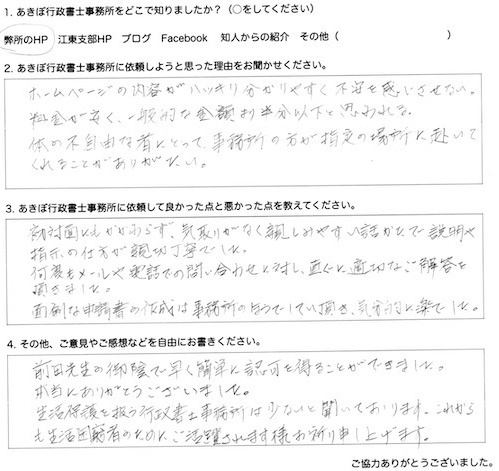 1. あきぼ行政書士事務所をどこで知りましたか？（○をしてください）
弊所のHP　江東支部HP　ブログ　Facebook　知人からの紹介　その他（　　　　　　　　）
2. あきぼ行政書士事務所に依頼しようと思った理由をお聞かせください。
ホームページの内容がハッキリ分かりやすく不安を感じさせない。
料金が安く、一般的な金額より半分以下と思われる。
体の不自由な者にとって、事務所の方が指定の場所に赴いて
くれることがありがたい。
3. あきぼ行政書士事務所に依頼して良かった点と悪かった点を教えてください。
初対面にもかかわらず、気取りがなく親しみやすい話かたで説明や
指示の仕方が親切丁寧でした。
何度もメールや電話での問い合わせに対し、直ぐに適切なご解答を
頂きました。
面倒な申請書の作成は事務所の方でして頂き、気分的に楽でした。
4. その他、ご意見やご感想などを自由にお書きください。
前田先生の御陰で早く簡単に認可を得ることができました。
本当にありがとうございました。
生活保護を扱う行政書士事務所は少ないと聞いております。これから
も生活困窮者のためにご活躍されます様お祈り申し上げます。
ご協力ありがとうございました。